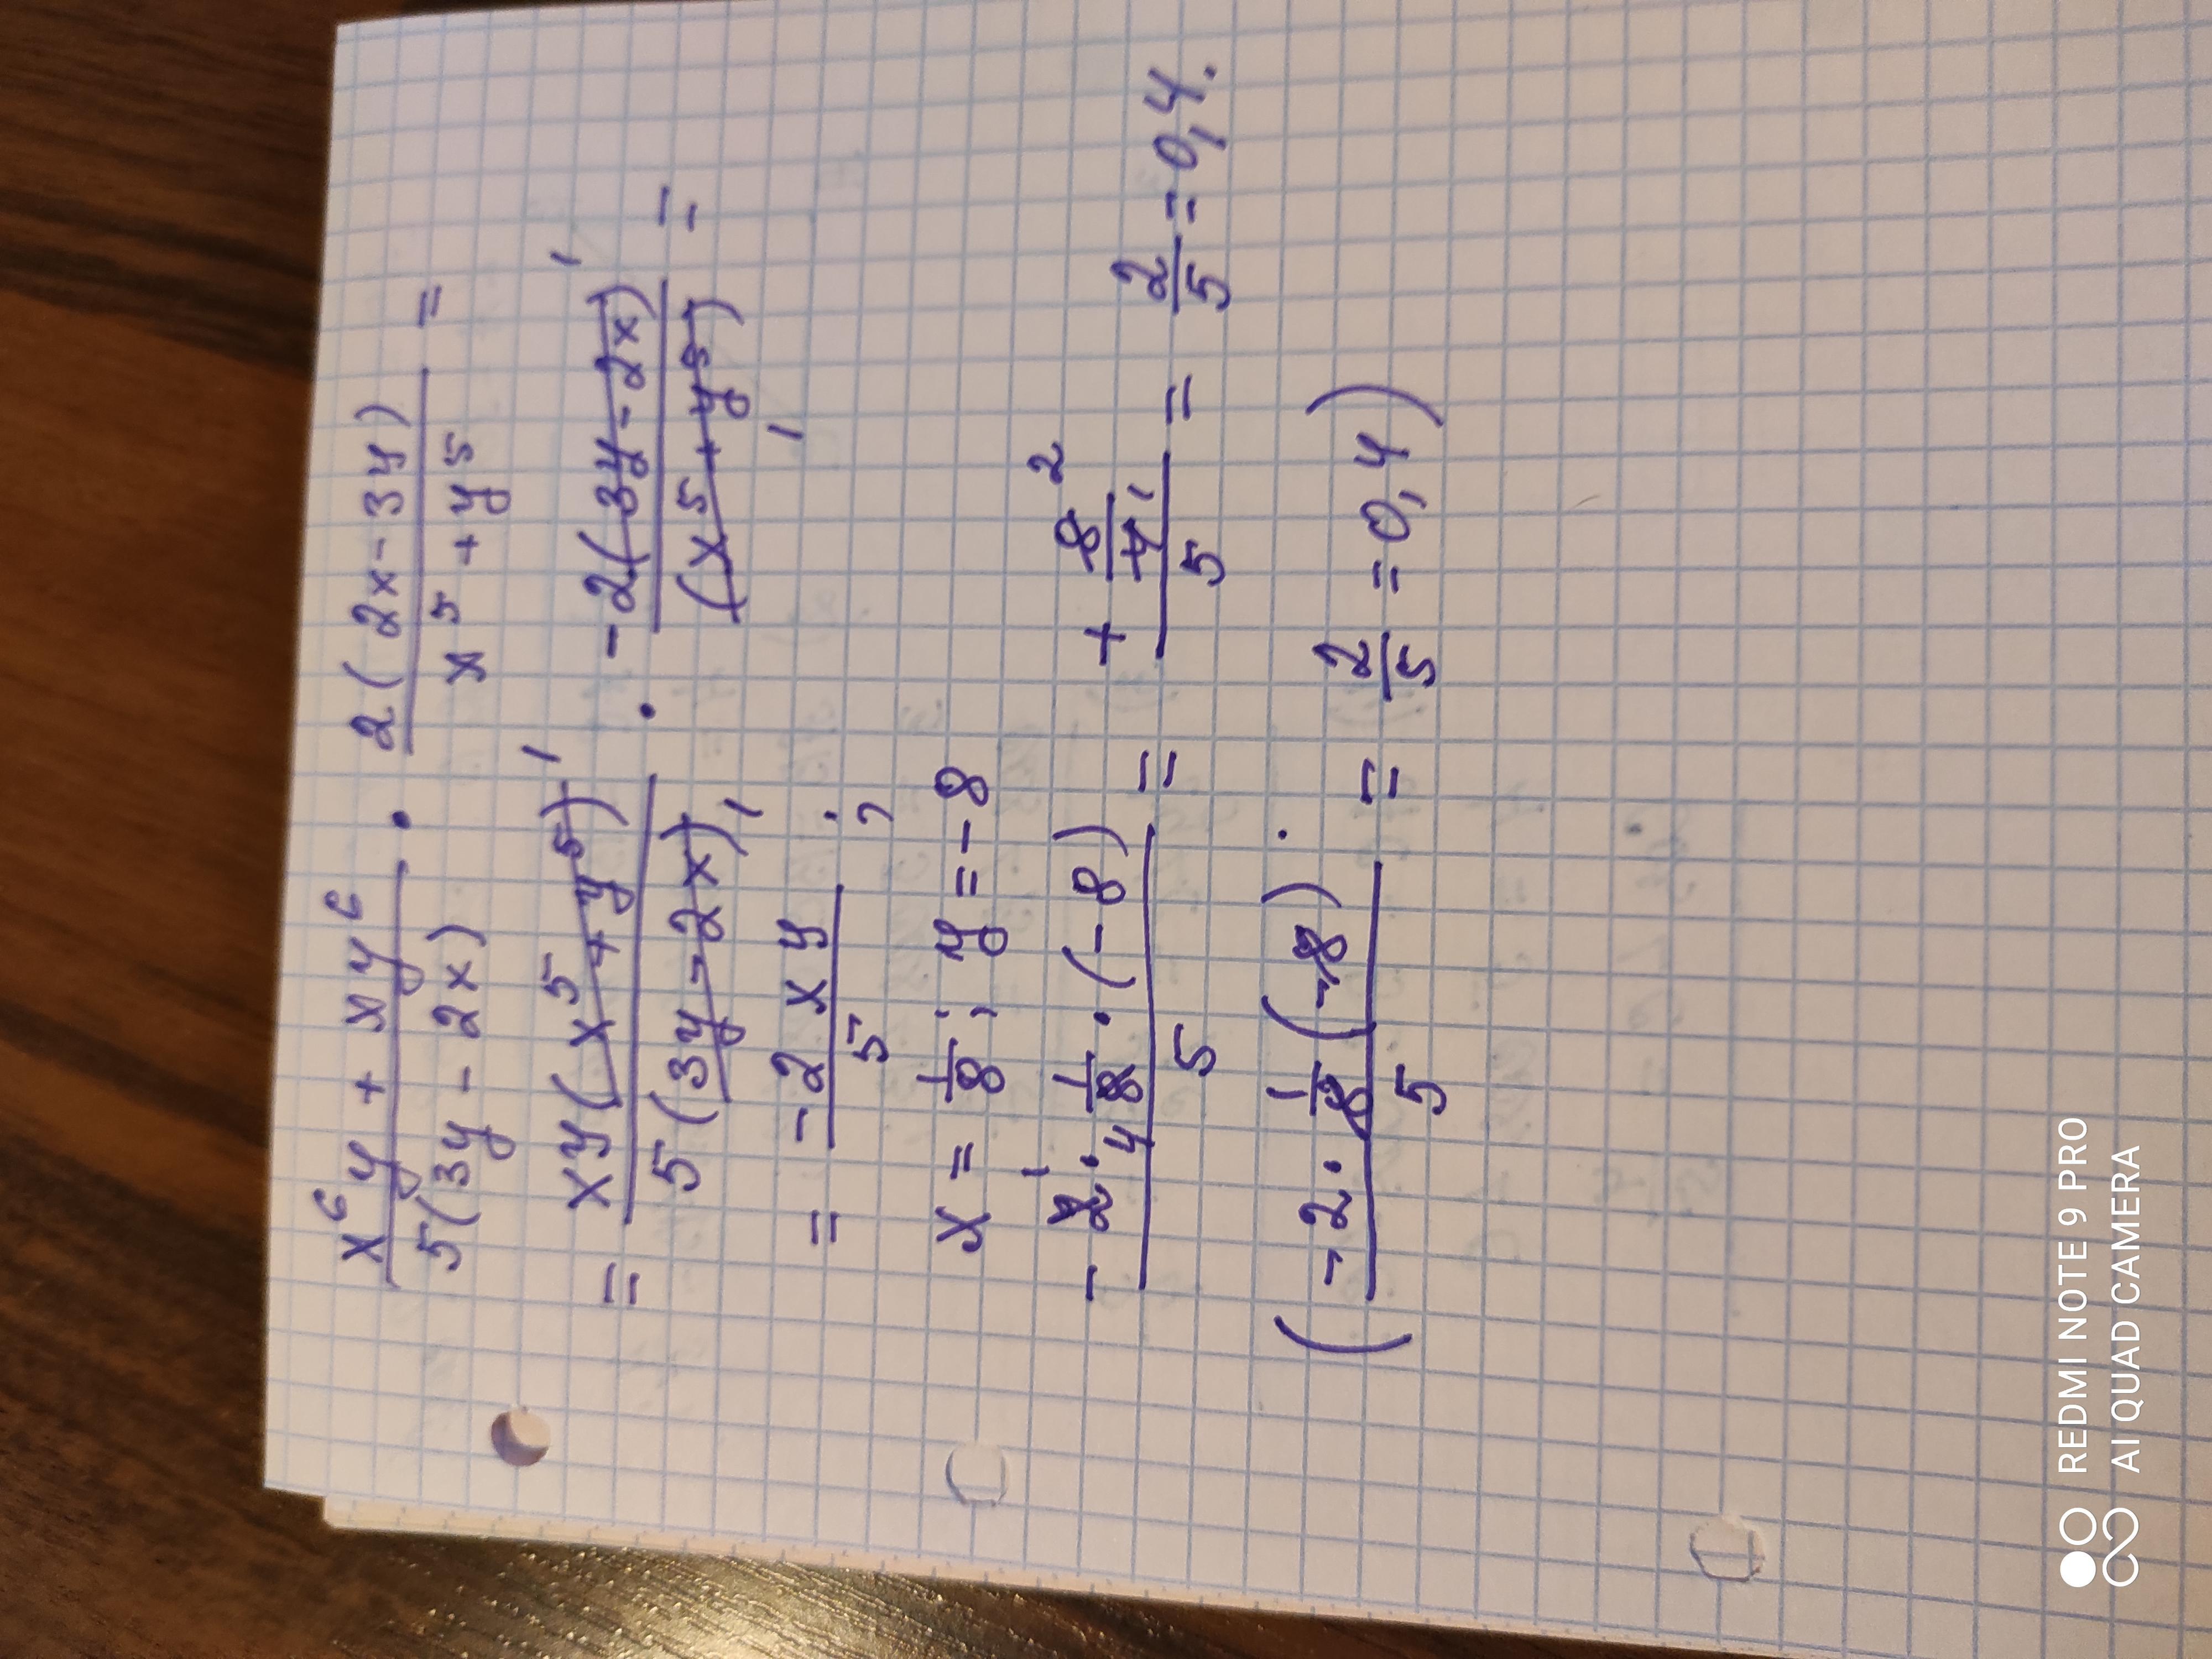 x⁶y + xy⁶ / 5(3y - 2x) · 2(2x - 3y) / x⁵ + y⁵ =
= xy(x⁵ + y⁵) ¹ / 5(3y - 2x) ¹ · -2(3y - 2x) ¹ / (x⁵ + y⁵) ¹ =
= -2xy / 5 ;
x = 1/8 ; y = -8
-2 ¹ · 1/8 ₄ · (-8) / 5 = + 8 ² / 4 ¹ / 5 = 2/5 = 0,4.
( -2 · 1/8 (-8) / 5 · = 2/5 = 0,4 )
REDMI NOTE 9 PRO
AI QUAD CAMERA